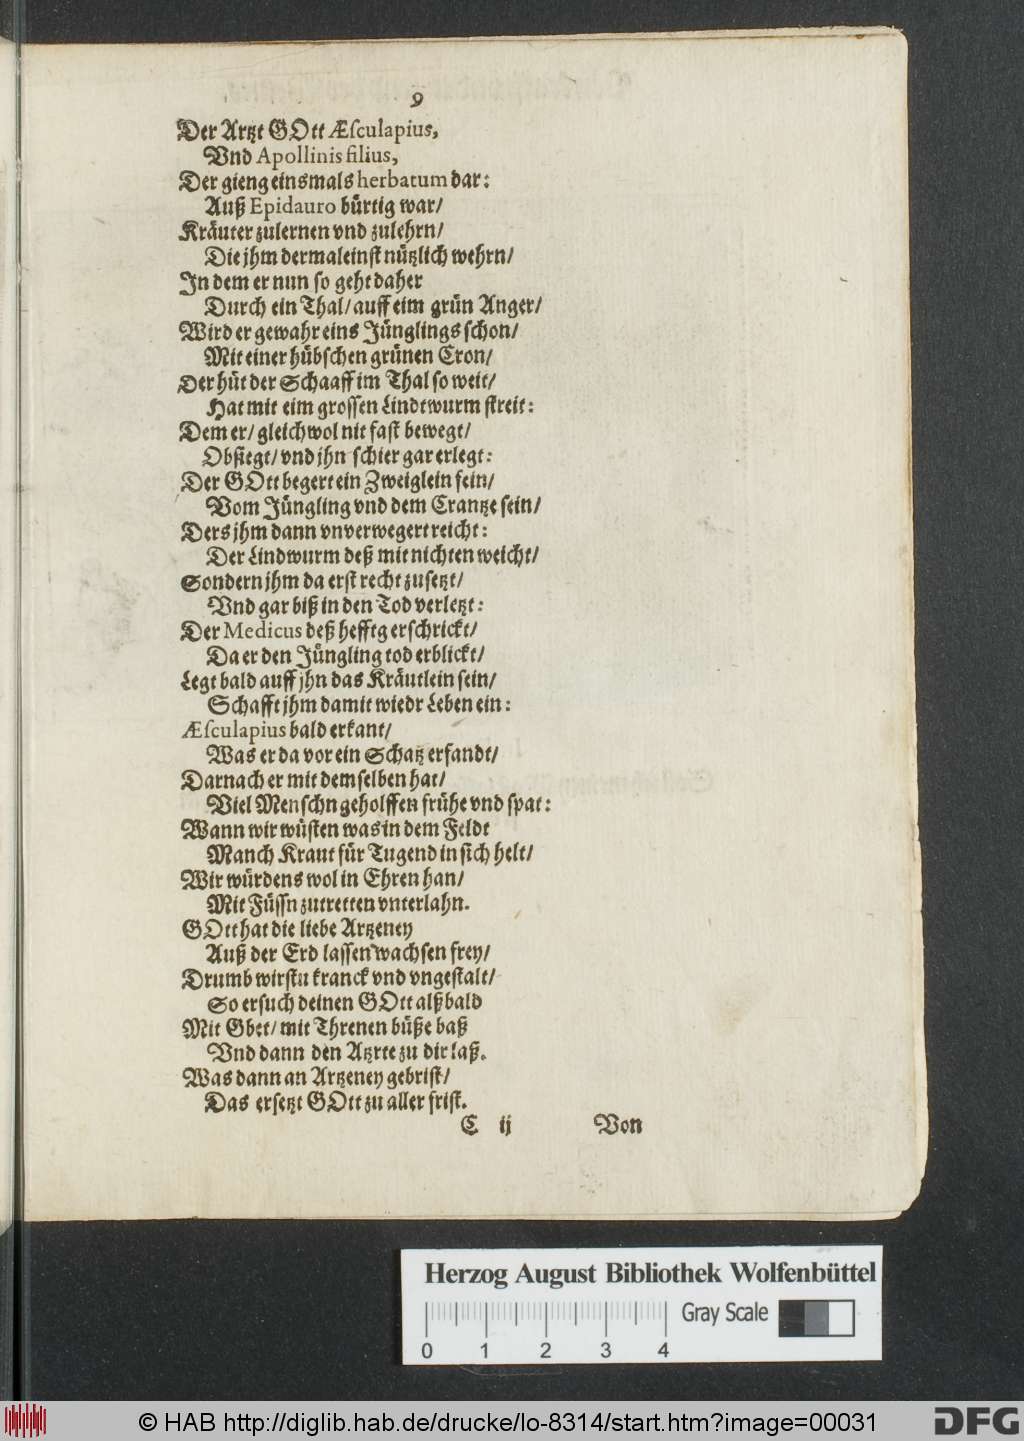 9
Der Artzt GOtt Æſculapius,
Vnd Apollinis filius,
Der gieng einsmals herbatum dar:
Auß Epidauro bürtig war/
Kräuter zulernen vnd zulehrn/
Die jhm dermaleinſt nützlich wehrn/
In dem er nun so geht daher
Durch ein Thal/ auff eim grün Anger/
Wird er gewahr eins Jünglings ſchon/
Mit einer hübſchen grünen Cron/
Der hüt der Schaaff im Thal so weit/
Hat mit eim groſſen Lindtwurm ſtreit:
Dem er/ gleichwol nit faſt bewegt/
Obſiegt/ vnd jhn ſchier gar erlegt:
Der GOtt begert ein Zweiglein fein/
Vom Jüngling vnd dem Crantze ſein/
Ders jhm dann vnverwegert reicht:
Der Lindwurm deß mit nichten weicht/
Sondern jhm da erſt recht zuſetzt/
Vnd gar biß in den Tod verletzt:
Der Medicus deß hefftg erſchrickt/
Da er den Jüngling tod erblickt/
Legt bald auff jhn das Kräutlein ſein/
Schafft jhm damit wiedr Leben ein:
Æſculapius bald erkant/
Was er da vor ein Schatz erfandt/
Darnach er mit demſelben hat/
Viel Menſchn geholffen frühe vnd ſpat:
Wann wir wüſten was in dem Feldt
Manch Kraut für Tugend in ſich helt/
Wir würdens wol in Ehren han/
Mit Füſſn zutretten vnterlahn.
GOtt hat die liebe Artzeney
Auß der Erd laſſen wachſen frey/
Drumb wirſtu kranck vnd vngeſtalt/
So erſuch deinen GOtt alßbald
Mit Gbet/ mit Threnen büße baß
Vnd dann den Atzrte zu dir laß.
Was dann an Artzeney gebriſt/
Das erſetzt GOtt zu aller friſt.
C ij Von
Herzog August Bibliothek Wolfenbüttel
Gray Scale
0 1 2 3 4
© HAB http://diglib.hab.de/drucke/lo-8314/start.htm?image=00031
DFG